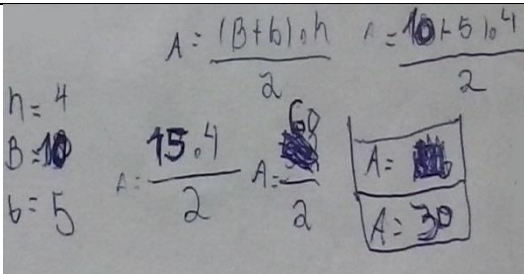 A = (B+b).h / 2
A = (10+5).4 / 2
h = 4
B = 10
b = 5
A = 15.4 / 2
A = 60 / 2
A =
A = 30